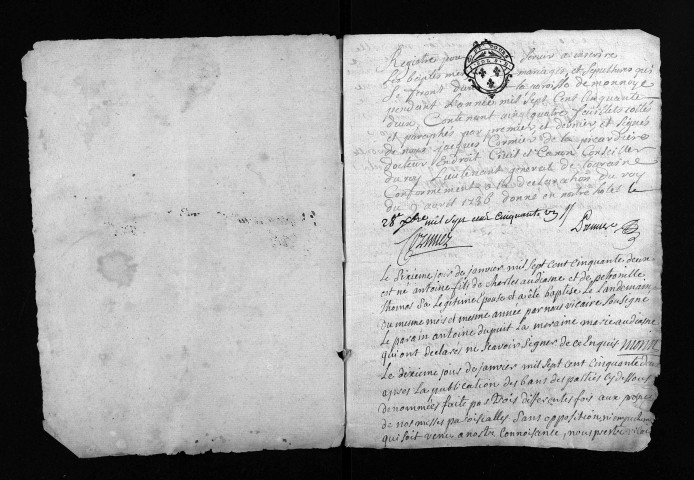 Registre pour servir a inscrire
Les bâptesmes mariages, et sepultures qui
Se feront dans la paroisse de monnoye
pendant Lannée mil Sept Cent Cinquante
deux, Contenant vingt quatre feuillets cottés
et paraphés par premier et dernier et signés
de nous jacques Cormier de la picardiere
docteur Endroit Civil et Canon Conseiller
du roy Lieutenant general de touraine
Conformement a la declaration du roy
du 9 avril 1736 donné en notre hotel le
28e xbre mil sept cent Cinquante un
Cormier
Le Sixieme jour de janvier mil Sept cent Cinquante deux
est né antoine fils de Charles audiasne et de petronille
thomas Sa Legitime Epouse et a été baptise Le Landemain
du mesme mois et mesme année par nous vicaire Soussigné
Le parain antoine dupuit La meraine marie audiasne
qui ont declarés ne scavoir Signer de ce Enquis
Le dixieme jour de janvier mil Sept cent Cinquante deux
apres La publication des bans des parties cy dessous
denommées faite par trois differentes fois aux prosnes
de nos messes paroissialles Sans opposition ni empechement
qui soit venu a nostre Connoissance, nous